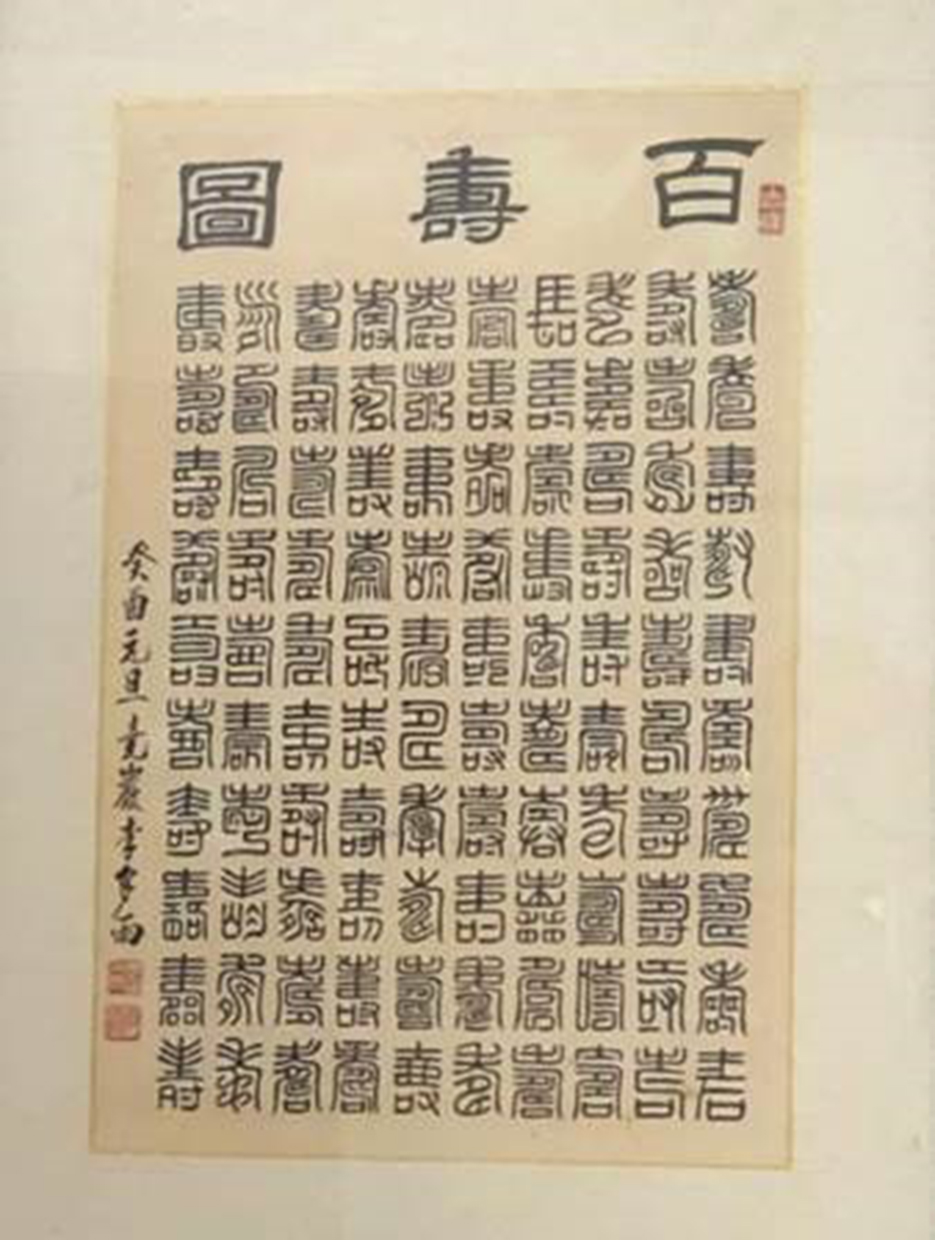 百壽圖
壽壽壽壽壽壽壽壽壽壽
壽壽壽壽壽壽壽壽壽壽
壽壽壽壽壽壽壽壽壽壽
壽壽壽壽壽壽壽壽壽壽
壽壽壽壽壽壽壽壽壽壽
壽壽壽壽壽壽壽壽壽壽
壽壽壽壽壽壽壽壽壽壽
壽壽壽壽壽壽壽壽壽壽
壽壽壽壽壽壽壽壽壽壽
壽壽壽壽壽壽壽壽壽壽
癸酉元旦